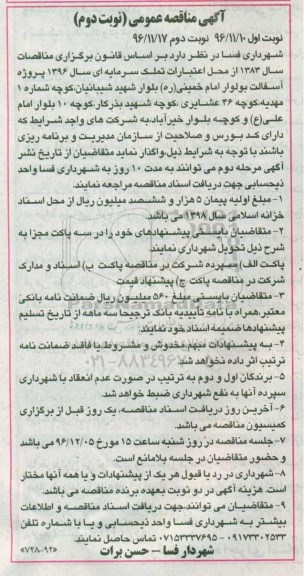 آگهی مناقصه عمومی (نوبت دوم)
نوبت اول ۹۶/۱۱/۱۰ نوبت دوم ۹۶/۱۱/۱۷
شهرداری فسا در نظر دارد بر اساس قانون برگزاری مناقصات
سال ۱۳۸۳ از محل اعتبارات تملک سرمایه ای سال ۱۳۹۶ پروژه
آسفالت بولوار امام خمینی(ره) بلوار شهید شیبانیان،کوچه شماره ۱
مهدیه،کوچه ۳۶ عشایری ،کوچه شهید بذرکار،کوچه ۱۰ بلوار امام
علی(ع) و کوچه بلوار خیرآباد،به شرکت های واجد شرایط که
دارای کد بورس و صلاحیت از سازمان مدیریت و برنامه ریزی
باشند با توجه به شرایط ذیل،واگذار نماید متقاضیان از تاریخ نشر
آگهی مرحله دوم می توانند به مدت ۱۰ روز به شهرداری فسا واحد
ذیحسابی جهت دریافت اسناد مناقصه مراجعه نمایند.
۱- مبلغ اولیه پیمان ۵ هزار و ششصد میلیون ریال از محل اسناد
خزانه اسلامی سال ۱۳۹۸ می باشد.
۲- متقاضیان بایستی پیشنهادهای خود را در سه پاکت مجزا به
شرح ذیل تحویل شهرداری نمایند.
پاکت الف) سپرده شرکت در مناقصه پاکت ب) اسناد و مدارک
شرکت در مناقصه پاکت ج) پیشنهاد قیمت
۳- متقاضیان بایستی مبلغ ۵۶۰ میلیون ریال ضمانت نامه بانکی
معتبر،همراه با نامه تأییدیه بانک ترجیحا سه ماهه از تاریخ تسلیم
پیشنهادها ضمیمه اسناد خود نمایند.
۴- به پیشنهادات مبهم مخدوش و مشروط یا فاقد ضمانت نامه
ترتیب اثر داده نخواهد شد.
۵- برندگان اول و دوم به ترتیب در صورت عدم انعقاد با شهرداری
سپرده آنها به نفع شهرداری ضبط خواهد شد.
۶- آخرین روز دریافت اسناد مناقصه، یک روز قبل از برگزاری
کمیسیون مناقصه می باشد.
۷- جلسه مناقصه در روز شنبه ساعت ۱۵ مورخ ۹۶/۱۲/۰۵ می باشد
و حضور متقاضیان در جلسه بلامانع است.
۸- شهرداری در رد یا قبول هر یک از پیشنهادات و یا همه آنها مختار
است. هزینه آگهی در دو نوبت بعهده برنده مناقصه می باشد.
۹- متقاضیان می توانند،جهت دریافت اسناد مناقصه و اطلاعات
بیشتر به شهرداری فسا واحد ذیحسابی و یا با شماره تلفن
۰۹۱۷۳۳۰۲۵۳۳ - ۰۷۱۵۳۳۳۷۶۹۵ تماس حاصل نمایند.
شهردار فسا – حسن برات «۷۲۸-۹۲»